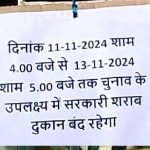 दिनांक 11-11-2024 शाम
4.00 बजे से 13-11-2024
शाम 5.00 बजे तक चुनाव के
उपलक्ष्य में सरकारी शराब
दुकान बंद रहेगा